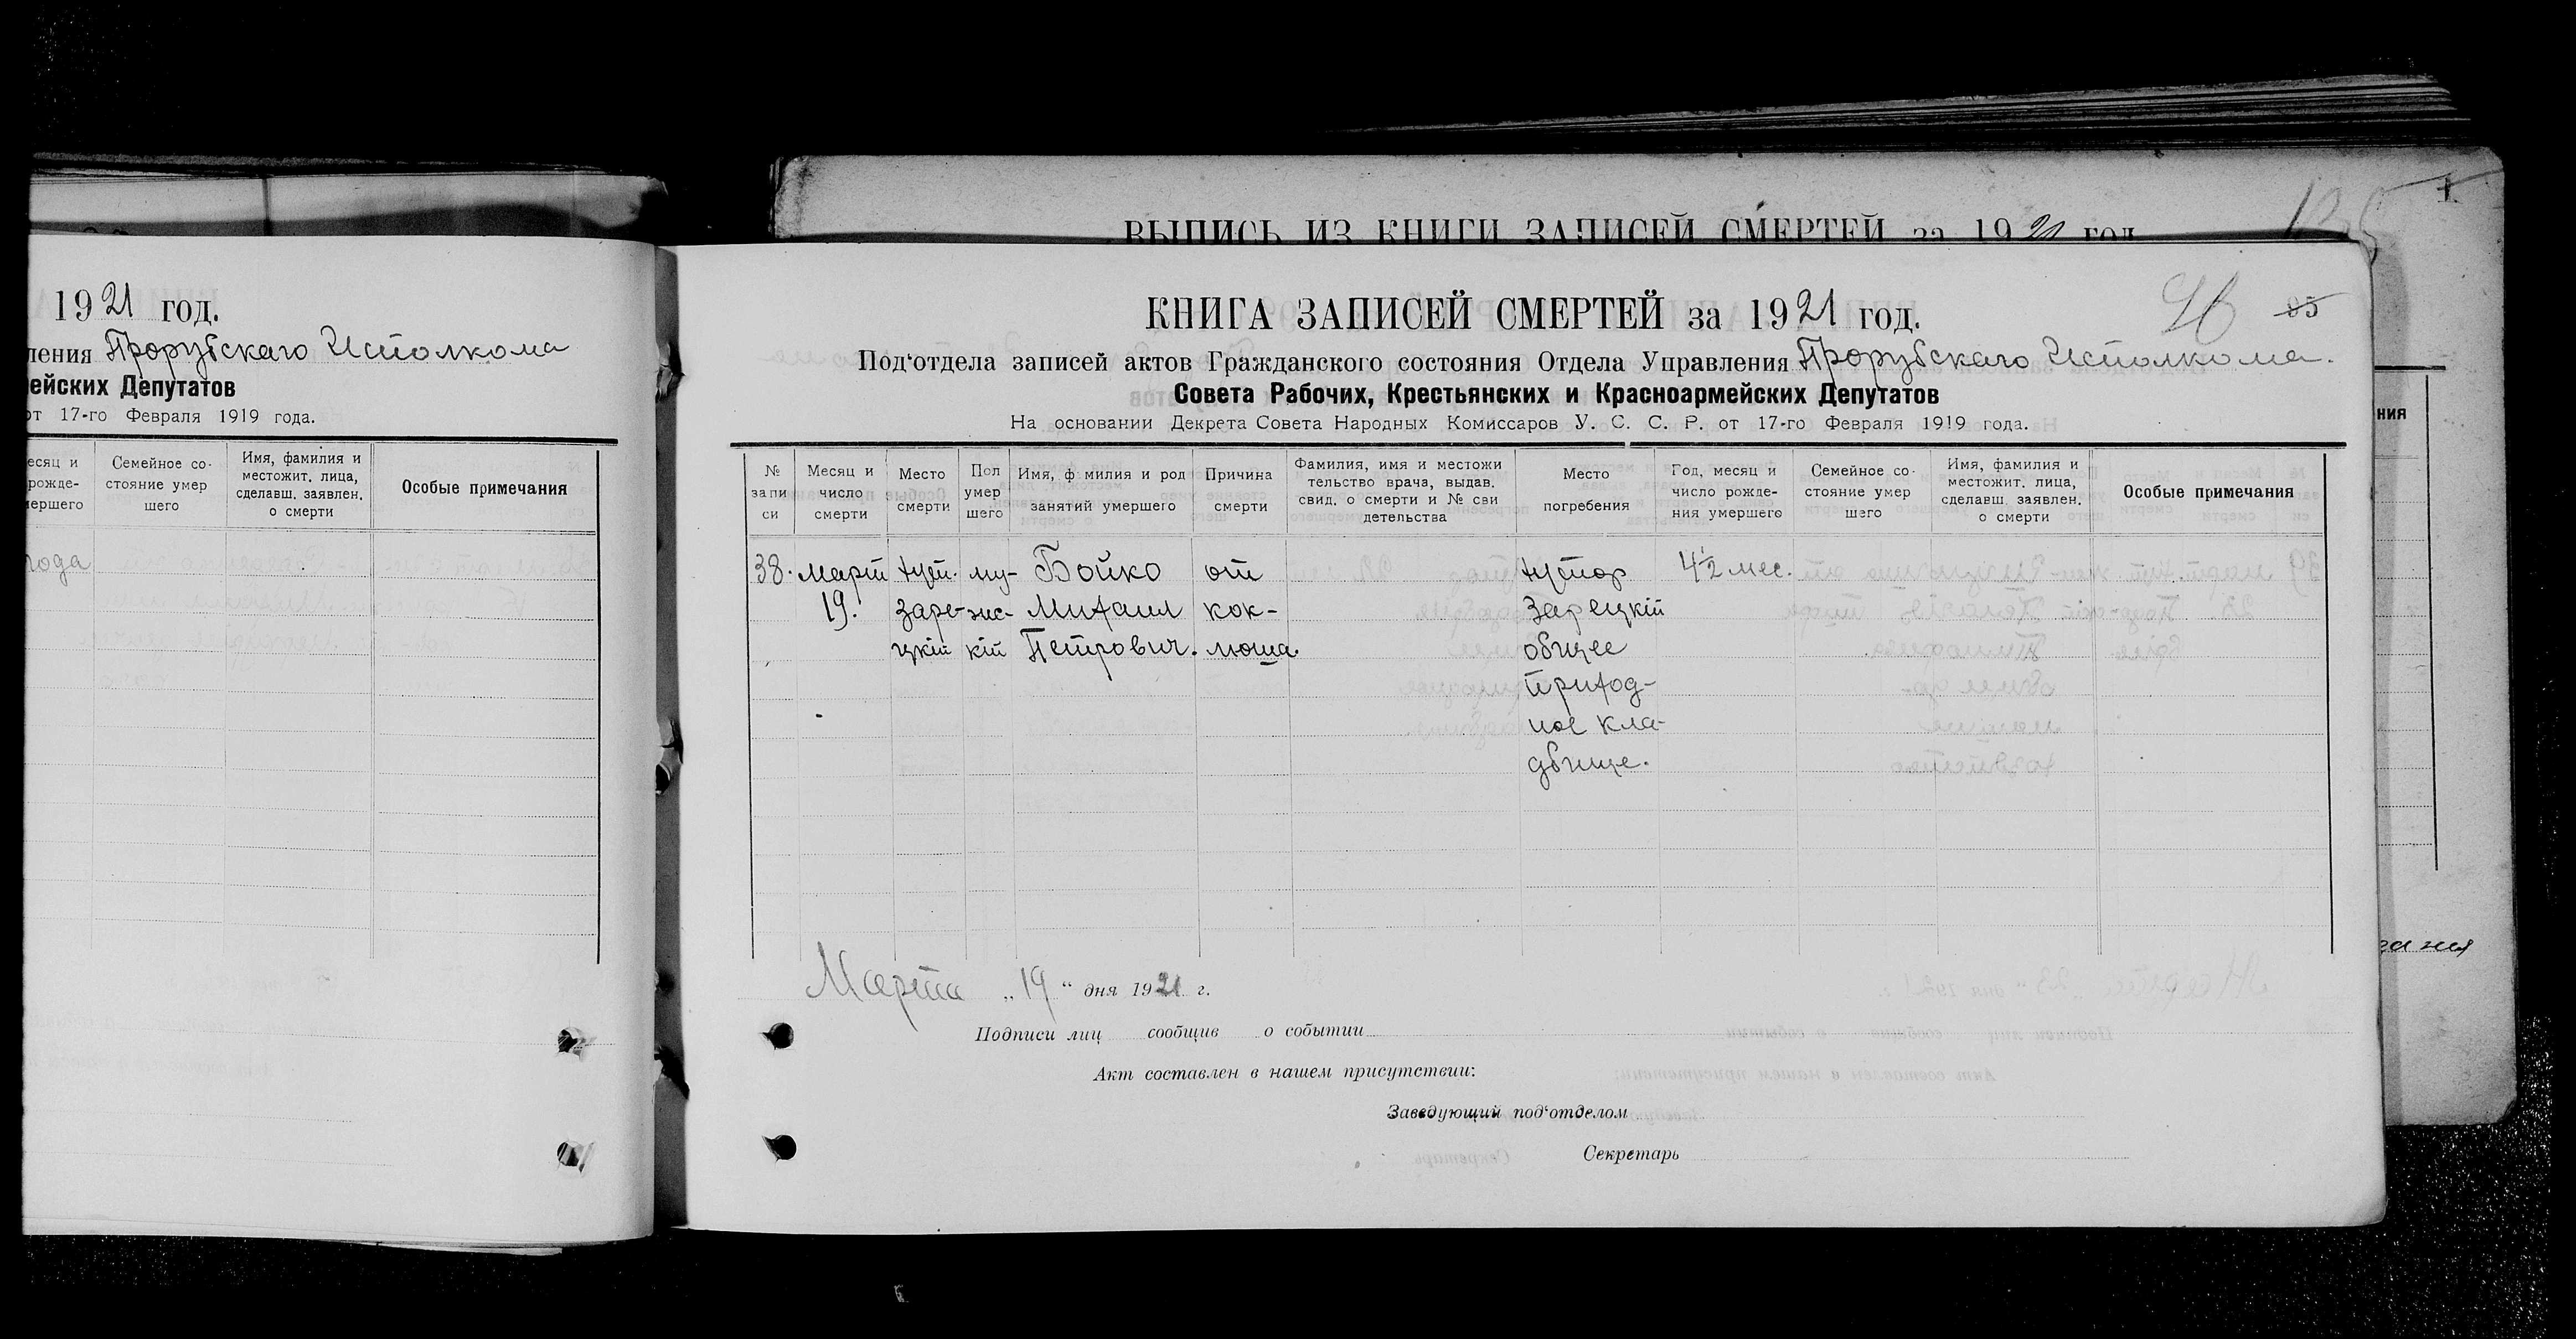 ВЫПИСЬ ИЗ КНИГИ ЗАПИСЕЙ СМЕРТЕЙ за 1921 год
1921 год.
ления Прорубскаго Исполкома
ейских Депутатов
от 17-го Февраля 1919 года.
есяц и рожде- мершего
Семейное со- стояние умер шего
Имя, фамилия и местожит. лица, сделавш. заявлен. о смерти
Особые примечания
года
46 85
КНИГА ЗАПИСЕЙ СМЕРТЕЙ за 1921 год.
Под‘отдела записей актов Гражданского состояния Отдела Управления Прорубскаго Исполкома.
Совета Рабочих, Крестьянских и Красноармейских Депутатов
На основании Декрета Совета Народных Комиссаров У. С. С. Р. от 17-го Февраля 1919 года.
№ запи си
Месяц и число смерти
Место смерти
Пол умер шего
Имя, ф милия и род занятий умершего
Причина смерти
Фамилия, имя и местожи тельство врача, выдав. свид. о смерти и № сви детельства
Место погребения
Год, месяц и число рожде- ния умершего
Семейное со- стояние умер шего
Имя, фамилия и местожит. лица, сделавш. заявлен. о смерти
Особые примечания
38. март хут. му- Бойко от хутор 4½ мес.
19. заре- жс- Михаил кок- Зарецкій
цкій кій Петрович. люша. общее
приход-
ное кла-
дбище.
Марта „19“ дня 1921 г.
Подписи лиц сообщив о событии
Акт составлен в нашем присутствии:
Заведующий под‘отделом
Секретарь
ния